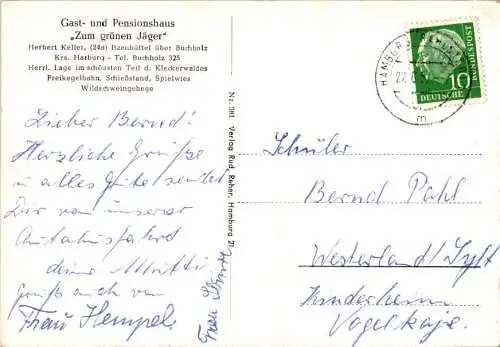 Gast- und Pensionshaus
"Zum grünen Jäger"
Herbert Keller, (24a) Itzenbüttel über Buchholz
Krs. Harburg - Tel. Buchholz 325
Herrl. Lage im schönsten Teil d. Kleckerwaldes
Freikegelbahn, Schießstand, Spielwies
Wildschweingehege
Lieber Bernd!
Herzliche Grüße
u alles Gute sendet
Dir von unserer
Autobusfahrt
deine Mutti
Gruß auch von
Frau Hempel
Frau
Nr. 981 Verlag Rud. Reher, Hamburg 21
HAMBURG
m
DEUTSCHE BUNDESPOST
10
Schüler
Bernd Pahl
Westerland/Sylt
Kinderheim
Vogelkoje.